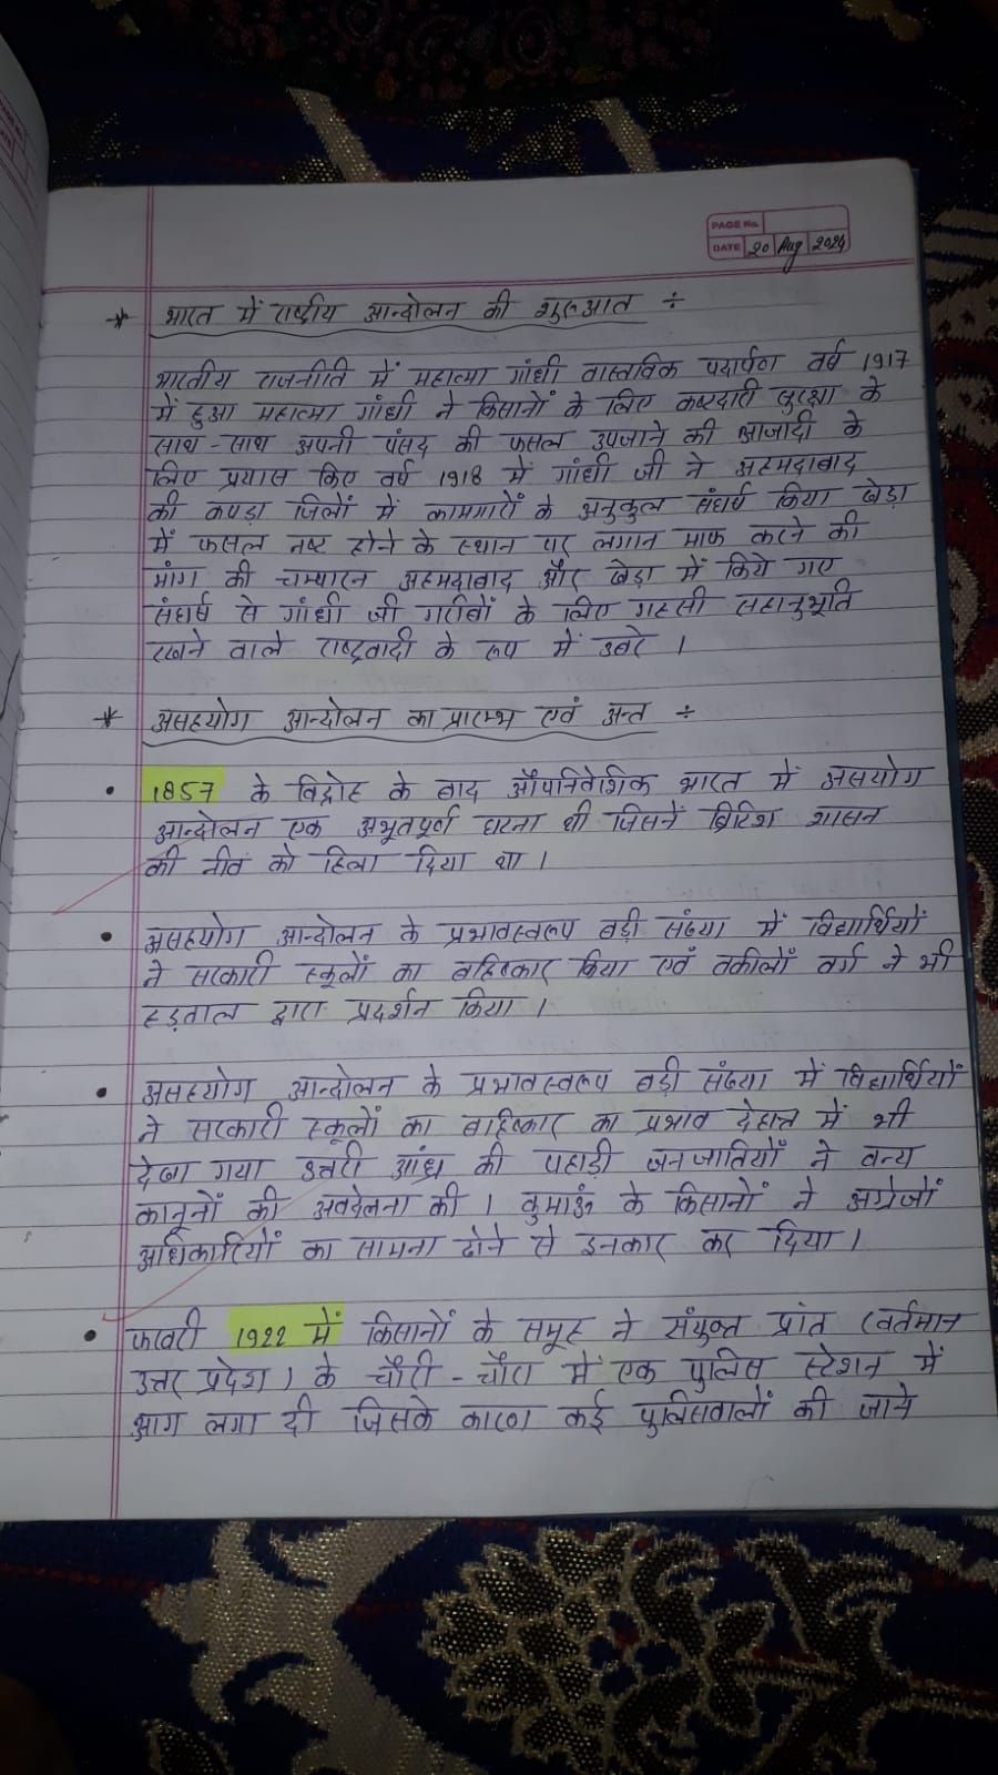 PAGE No.
DATE 20 Aug 2024
* भारत में राष्ट्रीय आन्दोलन की शुरुआत ÷
भारतीय राजनीति में महात्मा गांधी वास्तविक पदार्पण वर्ष 1917
में हुआ महात्मा गांधी ने किसानों के लिए कष्टदारी सुरक्षा के
साथ - साथ अपनी पंसद की फसल उपजाने की आजादी के
लिए प्रयास किए वर्ष 1918 में गांधी जी ने अहमदाबाद
की कपड़ा जिलों में कामगारों के अनुकुल संघर्ष किया खेड़ा
में फसल नष्ट होने के स्थान पर लगान माफ करने की
मांग की चम्पारन अहमदाबाद और खेड़ा में किये गए
संघर्ष से गांधी जी गरीबों के लिए गहसी सहानुभूति
रखने वाले राष्ट्रवादी के रूप में उबरे ।
* असहयोग आन्दोलन का प्रारम्भ एवं अन्त ÷
• 1857 के विद्रोह के बाद औपनिवेशिक भारत में असयोग
आन्दोलन एक अभूतपूर्ण घटना थी जिसनें ब्रिटिश शासन
की नीवं को हिला दिया था ।
• असहयोग आन्दोलन के प्रभावस्वरूप बड़ी संख्या में विद्यार्थियों
ने सरकारी स्कूलों का बहिष्कार किया एवं वकीलों वर्ग ने भी
हड़ताल द्वारा प्रदर्शन किया ।
• असहयोग आन्दोलन के प्रभावस्वरूप बड़ी संख्या में विद्यार्थियों
ने सरकारी स्कूलों का बहिष्कार का प्रभाव देहात में भी
देखा गया उत्तरी आंध्र की पहाड़ी जनजातियों ने वन्य
कानूनों की अवहेलना की । कुमाऊं के किसानों ने अग्रेजों
अधिकारियों का सामना ढोने से इनकार कर दिया ।
• फरवरी 1922 में किसानों के समूह ने संयुक्त प्रांत (वर्तमान
उत्तर प्रदेश) के चौरी - चौरा में एक पुलिस स्टेशन में
आग लगा दी जिसके कारण कई पुलिसवालों की जाने